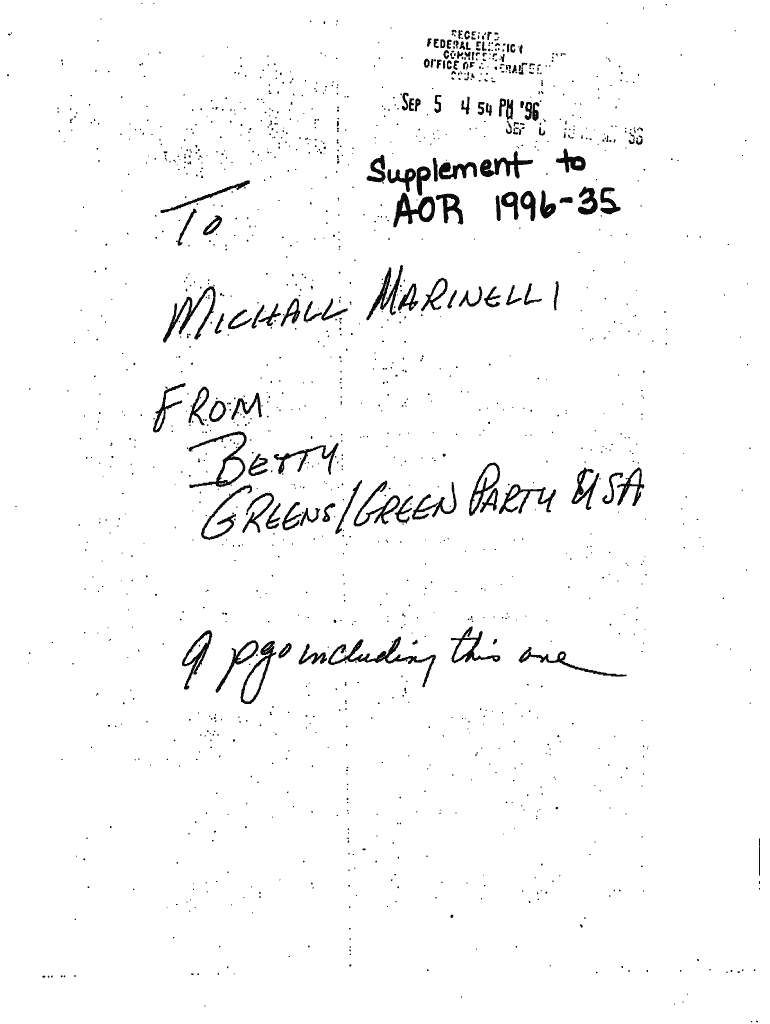 RECEIVED
FEDERAL ELECTION
COMMISSION
OFFICE OF GENERAL
COUNSEL
SEP 5 4 54 PM '96
SEP '96
Supplement to
AOR 1996-35
To
MICHALL MARINELLI
FROM
BETTY
GREENS/GREEN PARTY USA
9 pgs including this one